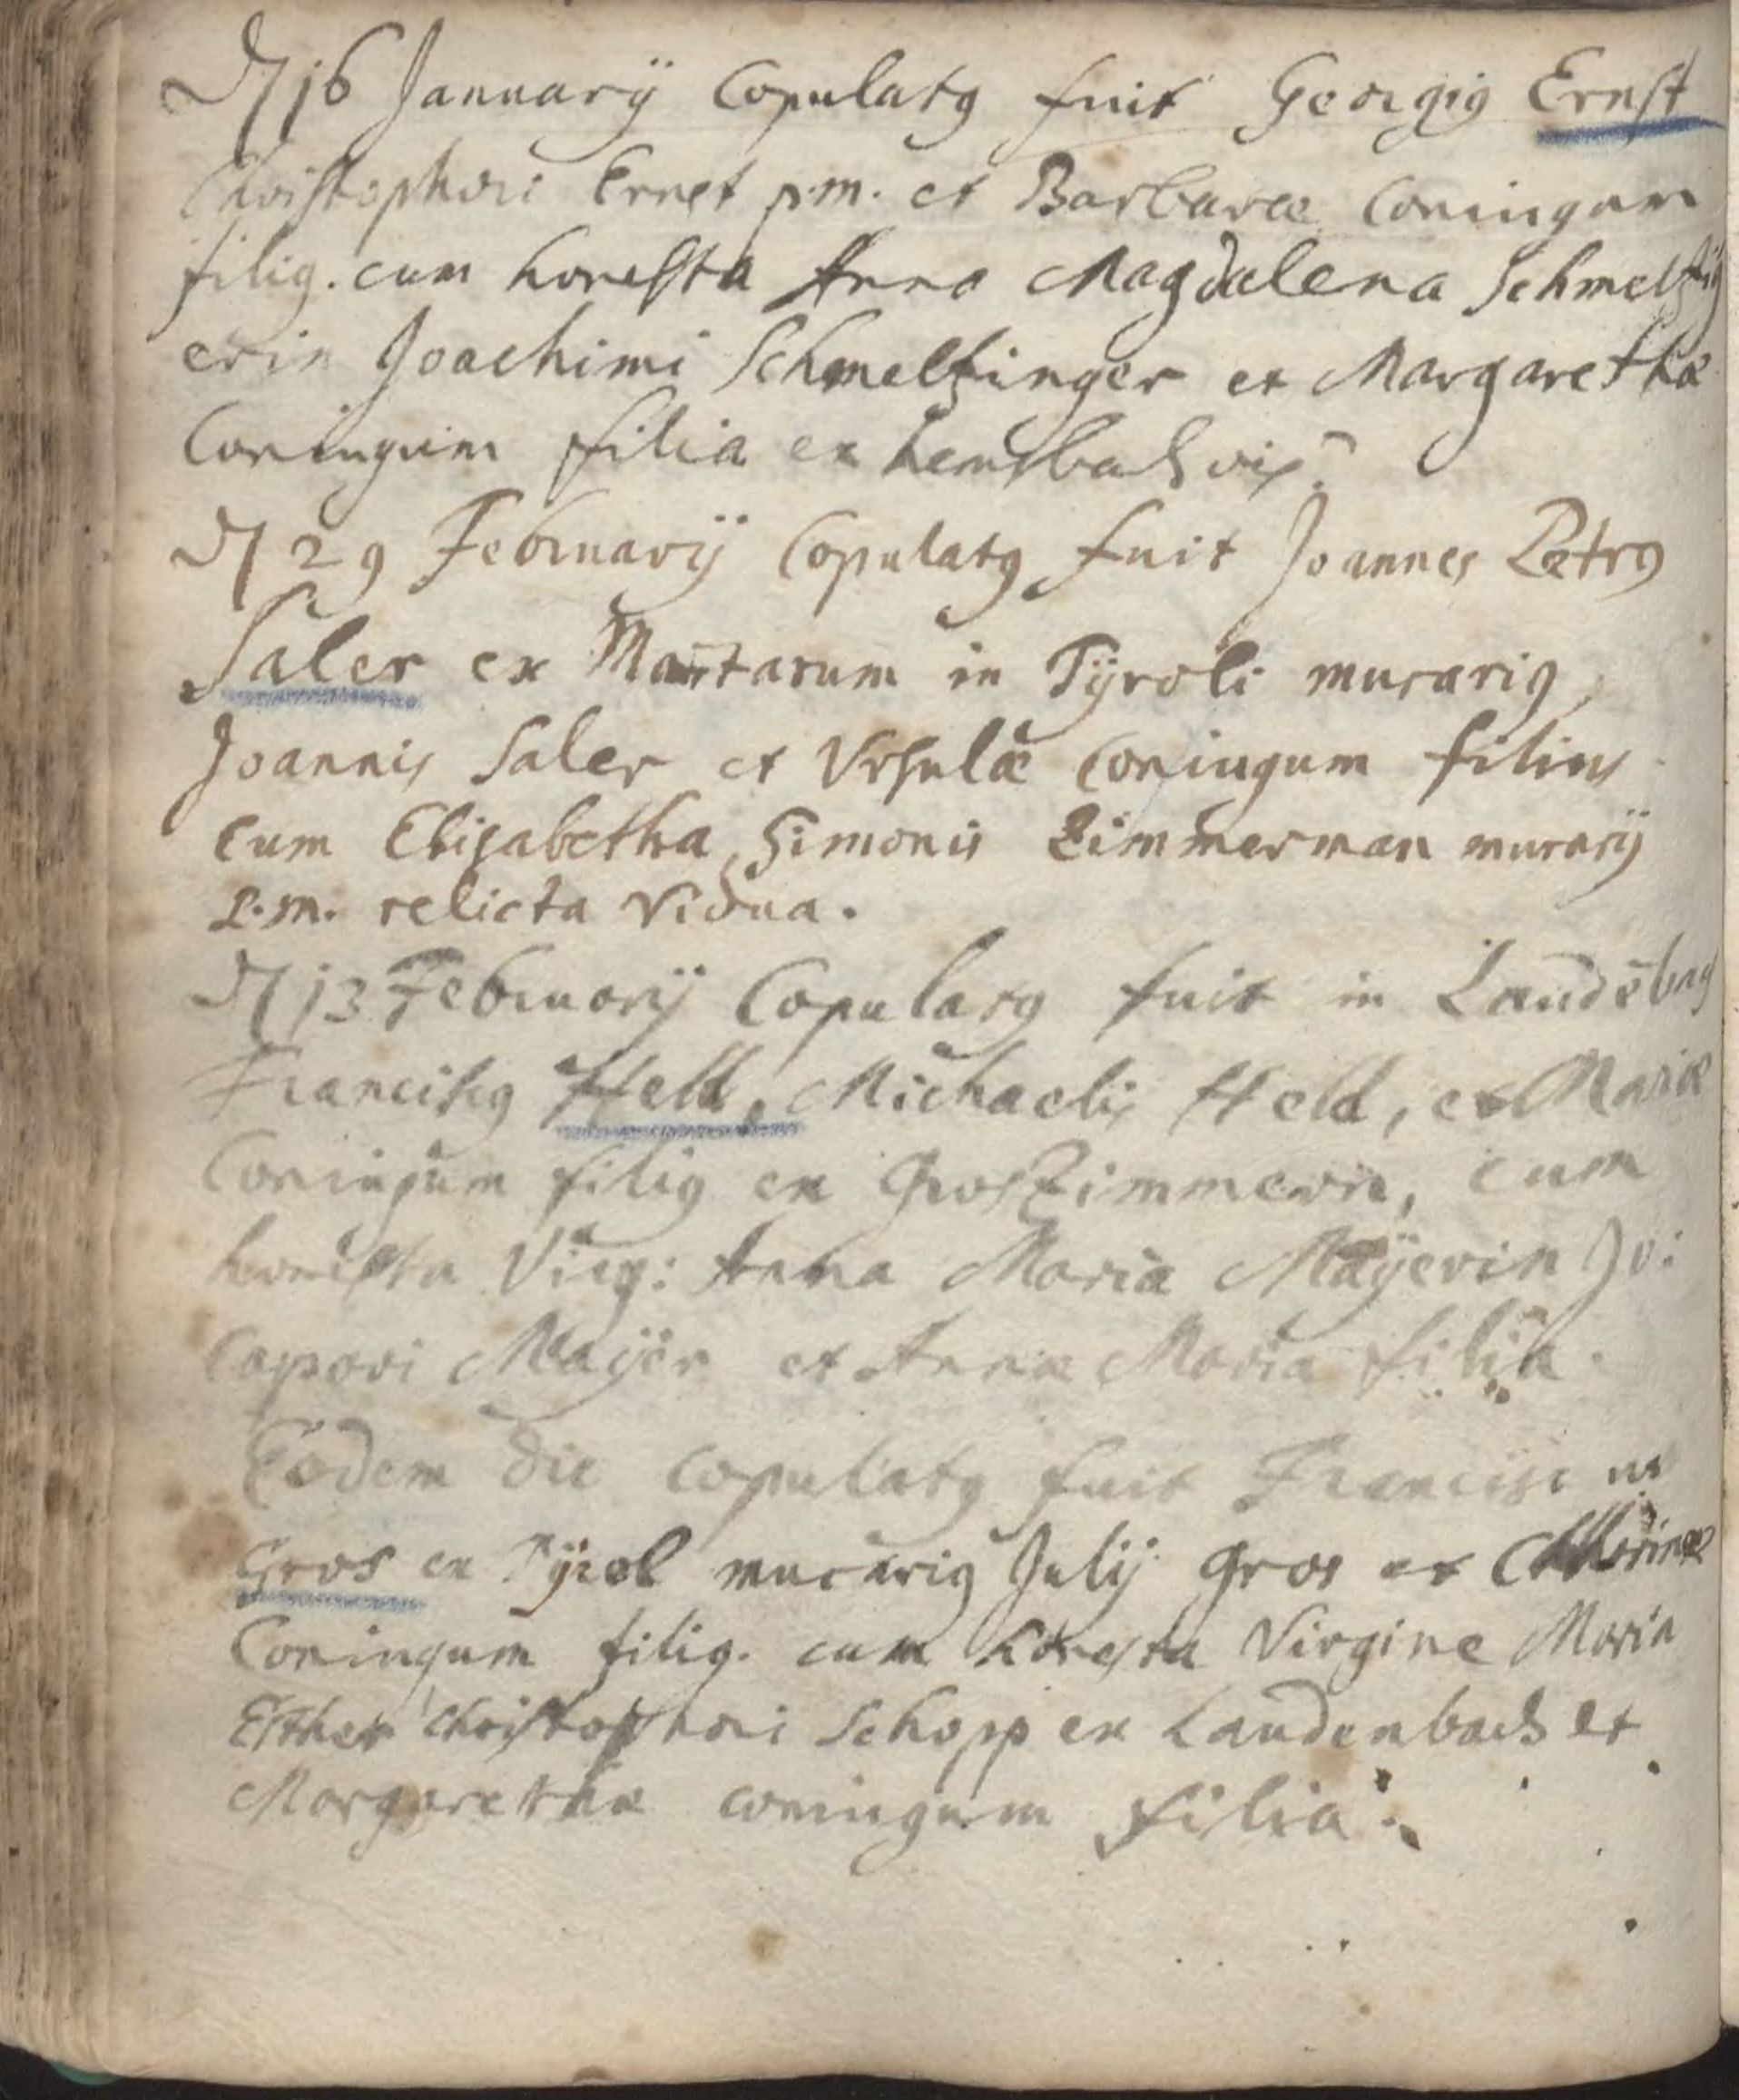 D 16 Januarij Copulatꝰ fuit Georgiꝰ Ernst
Christophori Ernst p.m. et Barbaræ Coniugum
filiꝰ. cum honesta Anna Magdalena Schmeltzing
erin Joachimi Schmeltzinger et Margarethæ
Coniugum filia ex hembsbach
D 29 Februarij Copulatꝰ fuit Joannes Petrꝰ
Saler ex in Tÿroli murariꝰ
Joannis Saler et Ursulæ coniugum filius
cum Elisabetha Simonis Zimmerman murarij
p.m. relicta vidua.
D 13 Februarij Copulatꝰ fuit in Laudēbach
Franciscꝰ Held, Michaelis Held, et Mariæ
Coniugum filiꝰ ex Groszimmern, cum
honesta Virg: Anna Maria Maÿerin Jo:
Caspari Maÿer et Annæ Maria filia.
Eodem die copulatꝰ fuit Franciscus
Gros ex Tÿrol murariꝰ Julij Gros et Catharinæ
Coniugum filiꝰ. cum honesta Virgine Maria
Esther Christophori Schopp ex Laudenbach et
Margarethæ coniugum filia.